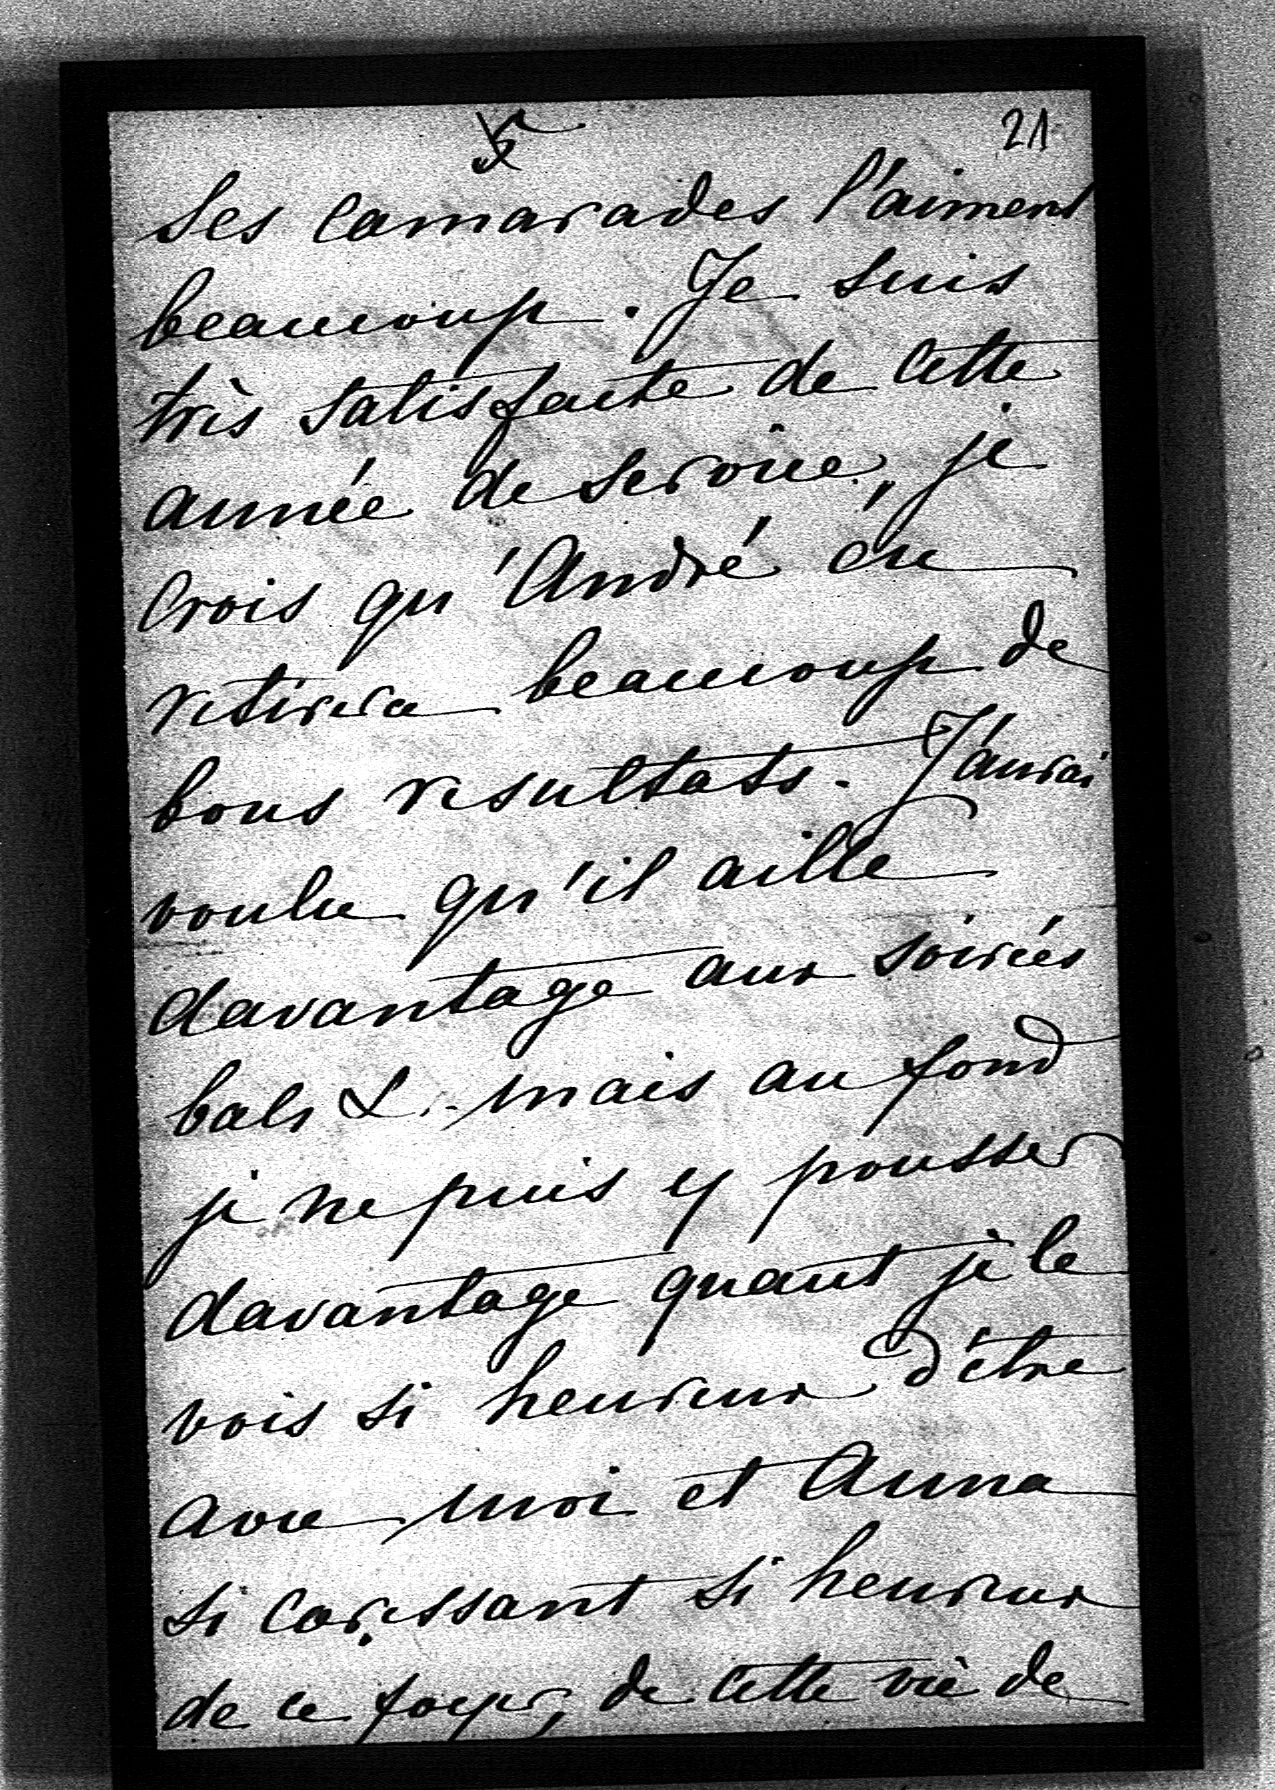 5 21
Ses camarades l'aiment
beaucoup. Je suis
très satisfaite de cette
année de service, je
crois qu'André en
retirera beaucoup de
bons resultats. J'aurai
voulu qu'il aille
davantage aux soirées
bals &. mais au fond
je ne puis y pousser
davantage quant je le
vois si heureux d'être
avec moi et Anna
si caressant si heureux
de ce foyer, de cette vie de